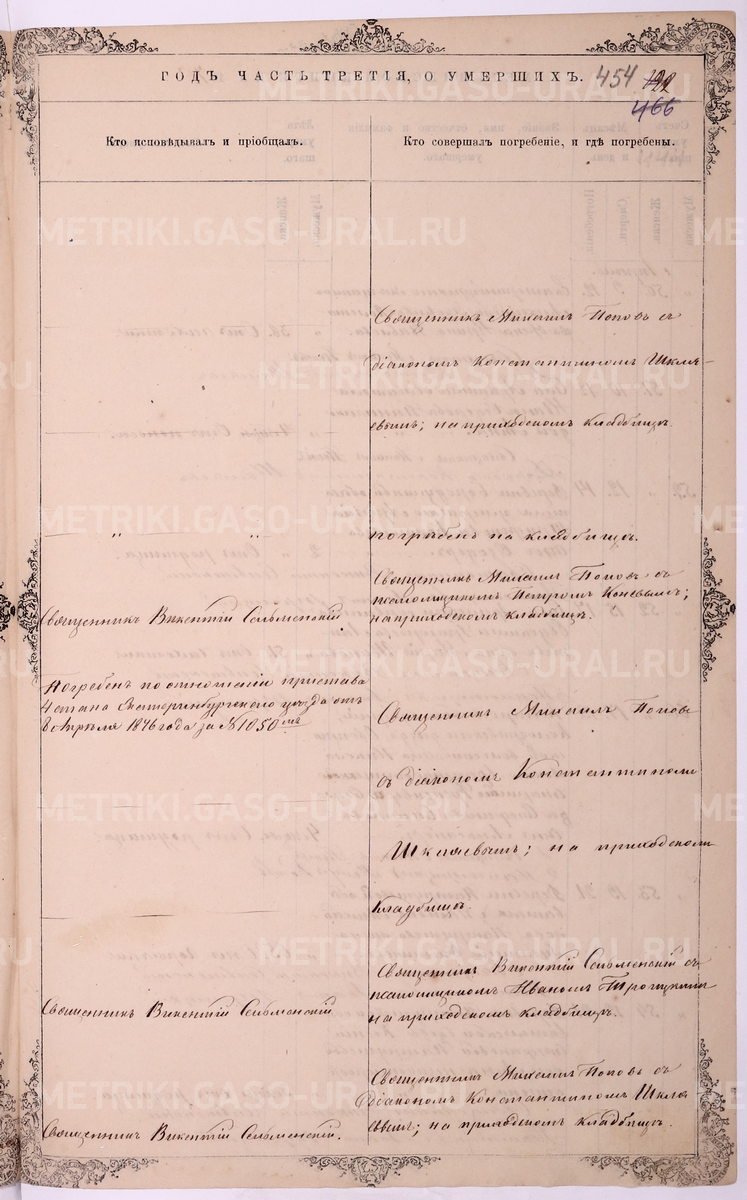 ГОДЪ ЧАСТЬ ТРЕТІЯ, О УМЕРШИХЪ. 454
466
Кто исповѣдывалъ и пріобщалъ.
Кто совершалъ погребеніе, и гдѣ погребены.
METRIKI.GASO-URAL.RU
Священникъ Михаилъ Поповъ съ
діакономъ Константиномъ Шкля-
евымъ; на приходскомъ кладбищѣ.
" "
погребенъ на кладбищѣ.
Священникъ Михаилъ Поповъ съ
псаломщикомъ Петромъ Коневымъ;
на приходскомъ кладбищѣ.
Священникъ Викентій Сельменскій
Погребенъ по отношенію пристава
4 стана Екатеринбургскаго уѣзда отъ
8 Апрѣля 1876 года за № 1050мъ
Священникъ Михаилъ Поповъ
съ діакономъ Константиномъ
Шкляевымъ; на приходскомъ
кладбищѣ.
Священникъ Викентій Сельменскій съ
псаломщикомъ Иваномъ Троицкимъ
на приходскомъ кладбищѣ.
Священникъ Викентій Сельменскій
Священникъ Михаилъ Поповъ съ
Діакономъ Константиномъ Шкля
евымъ; на приходскомъ кладбищѣ.
Священникъ Викентій Сельменскій.